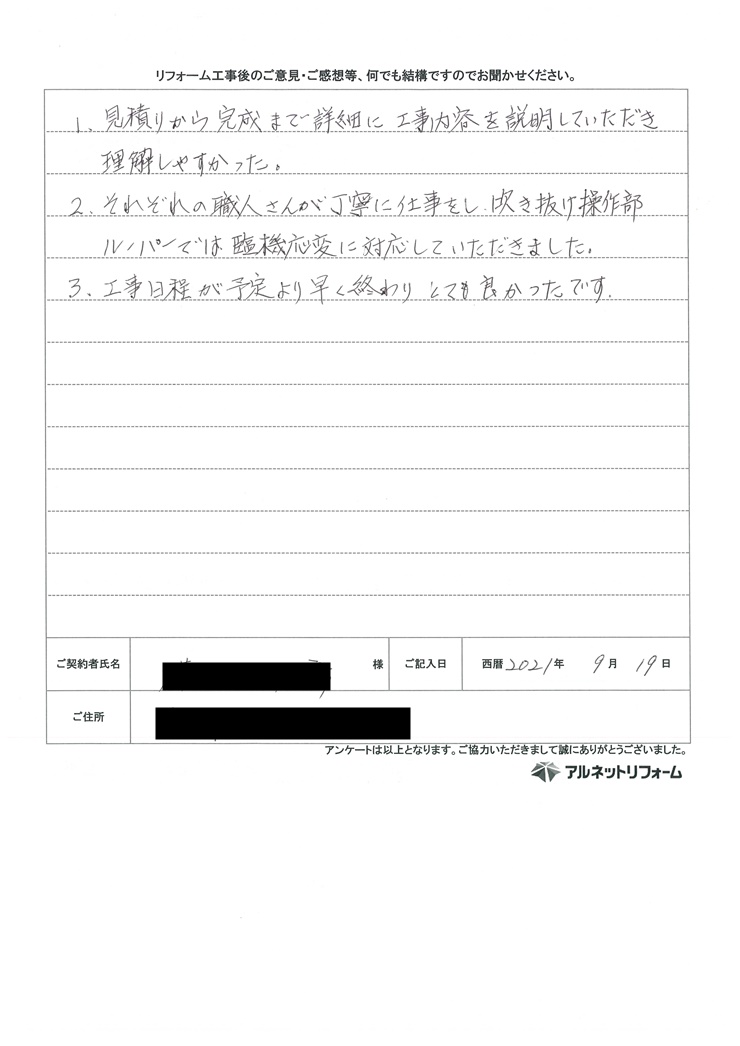 リフォーム工事後のご意見・ご感想等、何でも結構ですのでお聞かせください。
1、見積りから完成まで詳細に工事内容を説明していただき
理解しやすかった。
2、それぞれの職人さんが丁寧に仕事をし、吹き抜け操作部
ルーパーでは臨機応変に対応していただきました。
3、工事日程が予定より早く終わりとても良かったです.
ご契約者氏名 様 ご記入日 西暦2021年 9月 19日
ご住所
アンケートは以上となります。ご協力いただきまして誠にありがとうございました。
アルネットリフォーム